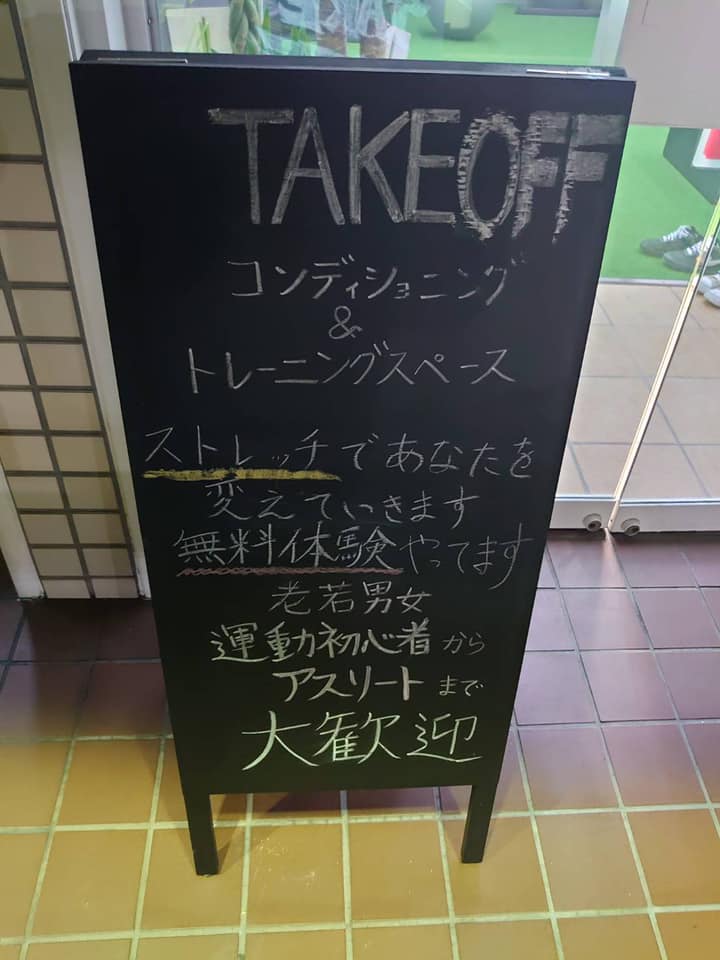 TAKEOFF
コンディショニング
&
トレーニングスペース
ストレッチであなたを
変えていきます
無料体験やってます
老若男女
運動初心者から
アスリートまで
大歓迎